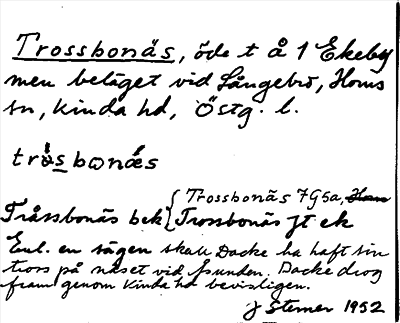 Trossbonäs, öde t å 1 Ekeby
men beläget vid Långebro, Horns
sn, Kinda hd, Östg. l.
tròs bonäs
Tråssbonäs bek { Trossbonäs 7G5a, Horn
Trossbonäs Jt ek
Enl. en sägen skall Dacke ha haft sin
tross på näset vid Åsunden. Dacke drog
fram genom Kinda hd bevisligen.
J Sterner 1952